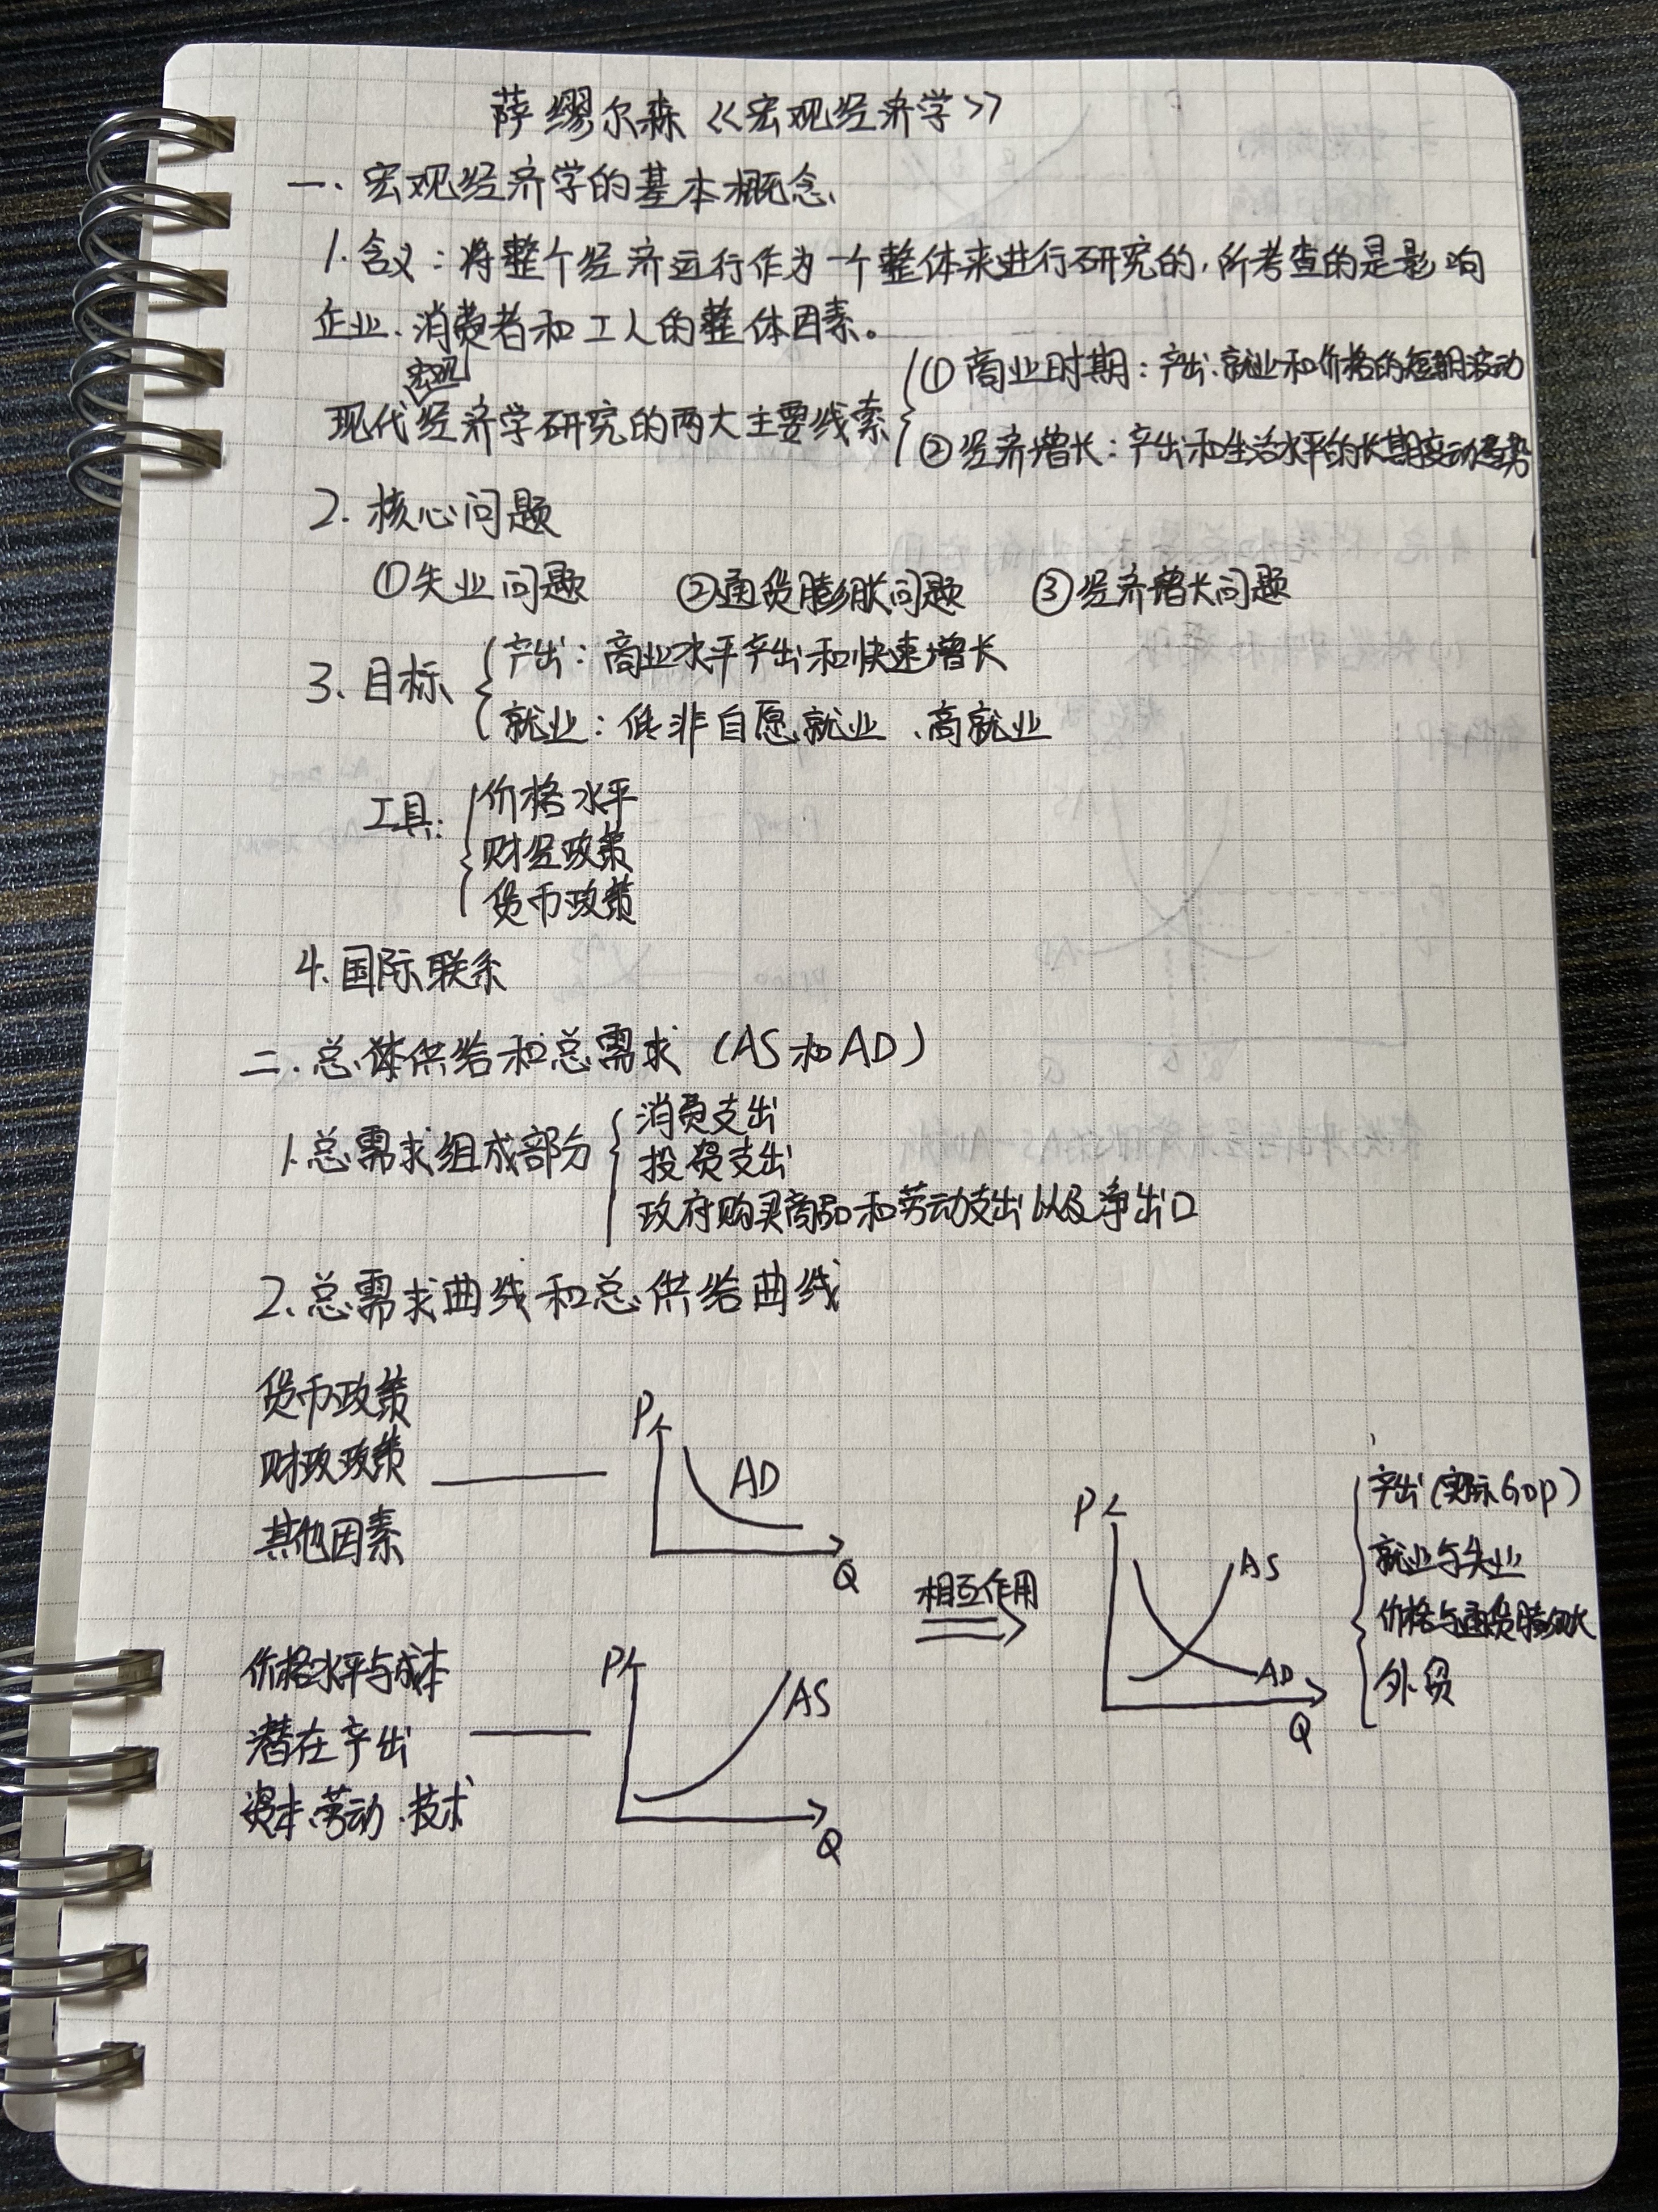 萨缪尔森《宏观经济学》
一.宏观经济学的基本概念
1.含义:将整个经济运行作为一个整体来进行研究的,所考查的是影响
企业、消费者和工人的整体因素。
现代宏观经济学研究的两大主要线索
①商业时期:产出、就业和价格的短期波动
②经济增长:产出和生活水平的长期变动趋势
2.核心问题
①失业问题 ②通货膨胀问题 ③经济增长问题
3.目标
产出:商业水平产出和快速增长
就业:低非自愿就业、高就业
工具:
价格水平
财经政策
货币政策
4.国际联系
二.总体供给和总需求(AS和AD)
1.总需求组成部分
消费支出
投资支出
政府购买商品和劳动支出以及净出口
2.总需求曲线和总供给曲线
货币政策
财政政策
其他因素
P
AD
Q
价格水平与成本
潜在产出
资本、劳动、技术
P
AS
Q
相互作用
P
AS
AD
Q
产出(实际GDP)
就业与失业
价格与通货膨胀
外贸